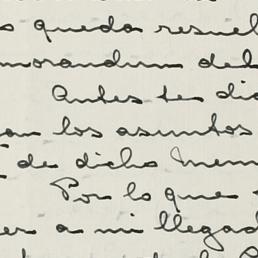 queda resuel
morandum del
Antes te dio
an los asuntos
de dicho Mem
Por lo que
er a mi llegad